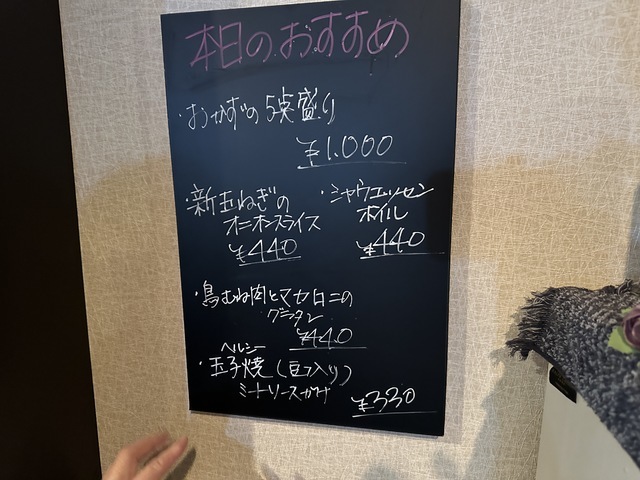 本日のおすすめ
・おかずの5点盛り
¥1.000
・新玉ねぎの
オニオンスライス
¥440
・シャウエッセン
ボイル
¥440
・鳥むね肉とマカロニの
グラタン
¥440
ヘルシー
・玉子焼(豆フ入り)
ミートソースがけ
¥330